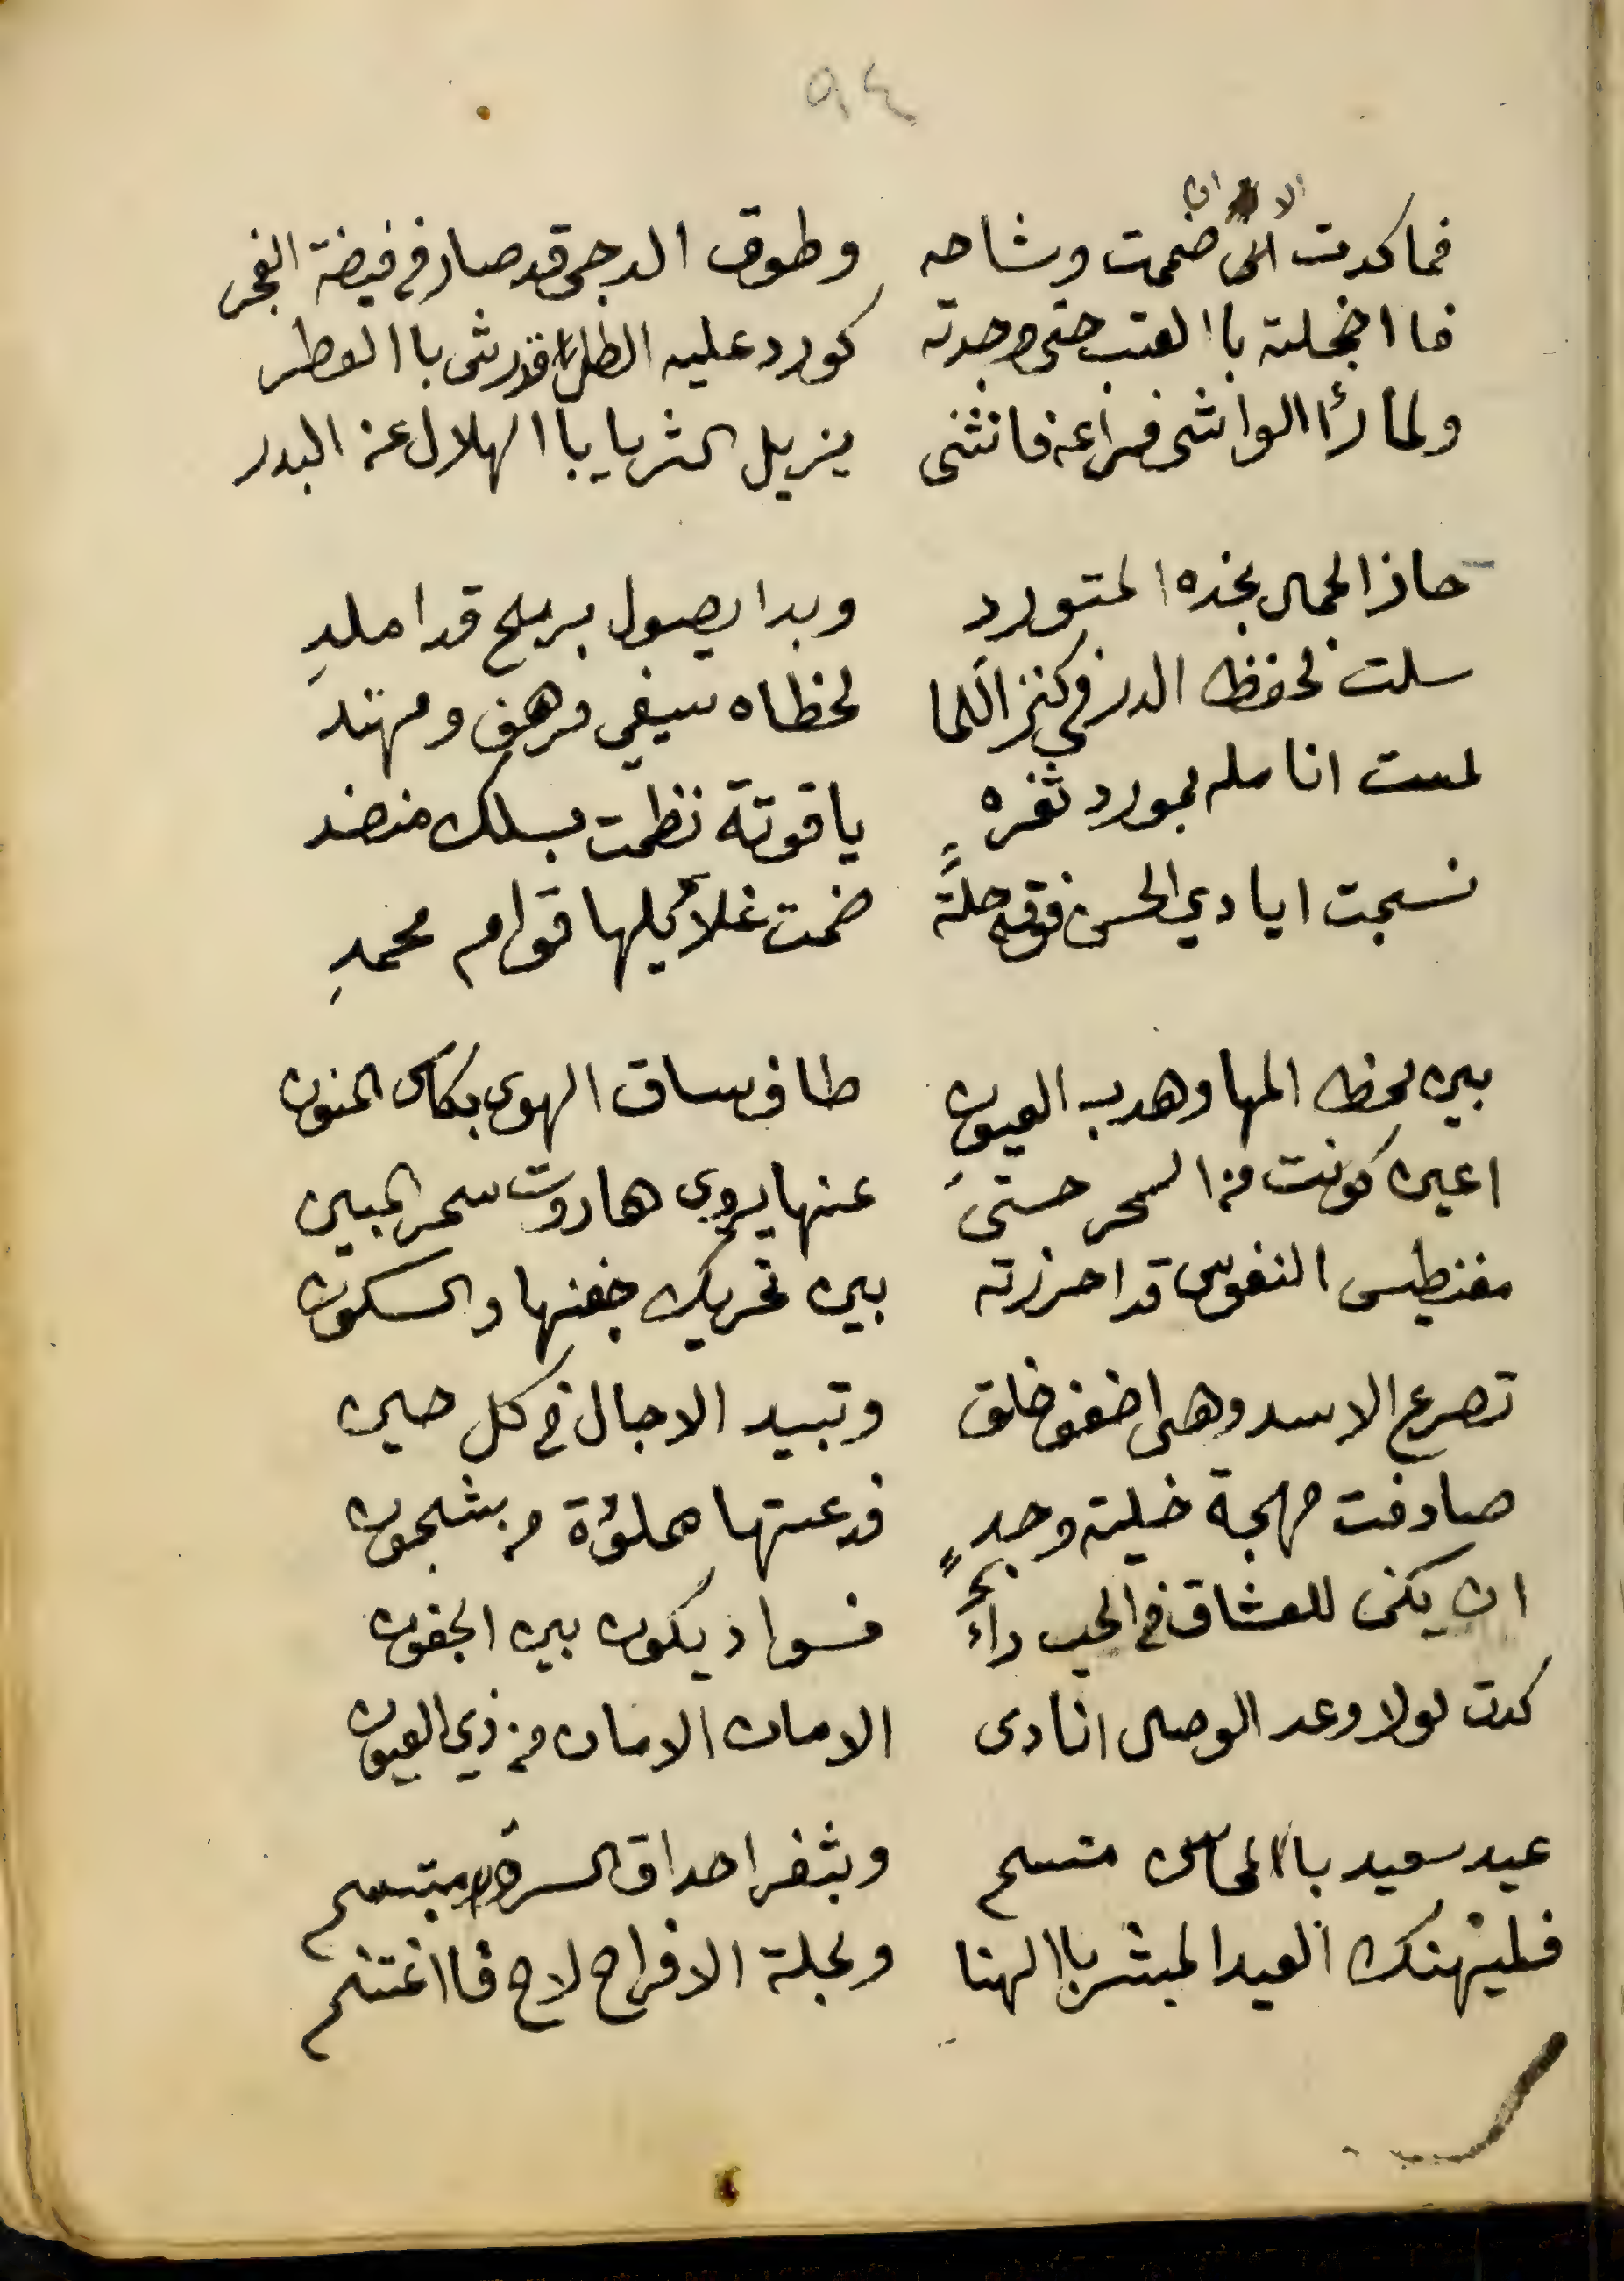 ٩٤
الا ان
فما كدت الى ضممت وشاحه وطوق الدجى قد صار في فيضة الفجر
فا اخجلته با العتب حتى وجدته كورد عليه الطل قد رشى با العطر
ولما رءا الواشى فراعه فانثنى يزيل الثريا با الهلال عن البدر
حاز الجمال بخده المتورد وبدا يصول برمح قد املدِ
سلت لحفظ الدر في كنز اللما لحظاه سيفي مرهف ومهند
لمست انامله بمورد ثغرهٍ ياقوتة نظمت بسلك منضد
نسجت ايادي الحسن فوقه حلةً ضمت غلائيلها قوام محمدِ
بين لحظ المها وهدب العيون طاف ساق الهوى بكاس المنون
اعين كونت من السحر حتىَ عنها يروى هاروت سحر المبين
مغنطيس النفوس قد احرزته بين تحريك جفنها والسكون
تصرع الاسد وهى اضعف خلق وتبيد الاجال في كل حين
صادفت مهجة خيلته وجدٍ فدعتها مملؤة من شجون
ان يكن للعشاق في الحب داءً فسواد يكون بين الجفون
كدت لولا وعد الوصل انادى الامان الامان من ذي العيون
عيد سعيد با المحاسن متسم وبثغر احداق المسرة مبتسم
فليهنك العيد المبشر با الهنا وبجلة الافراح لاح فا اغتنم